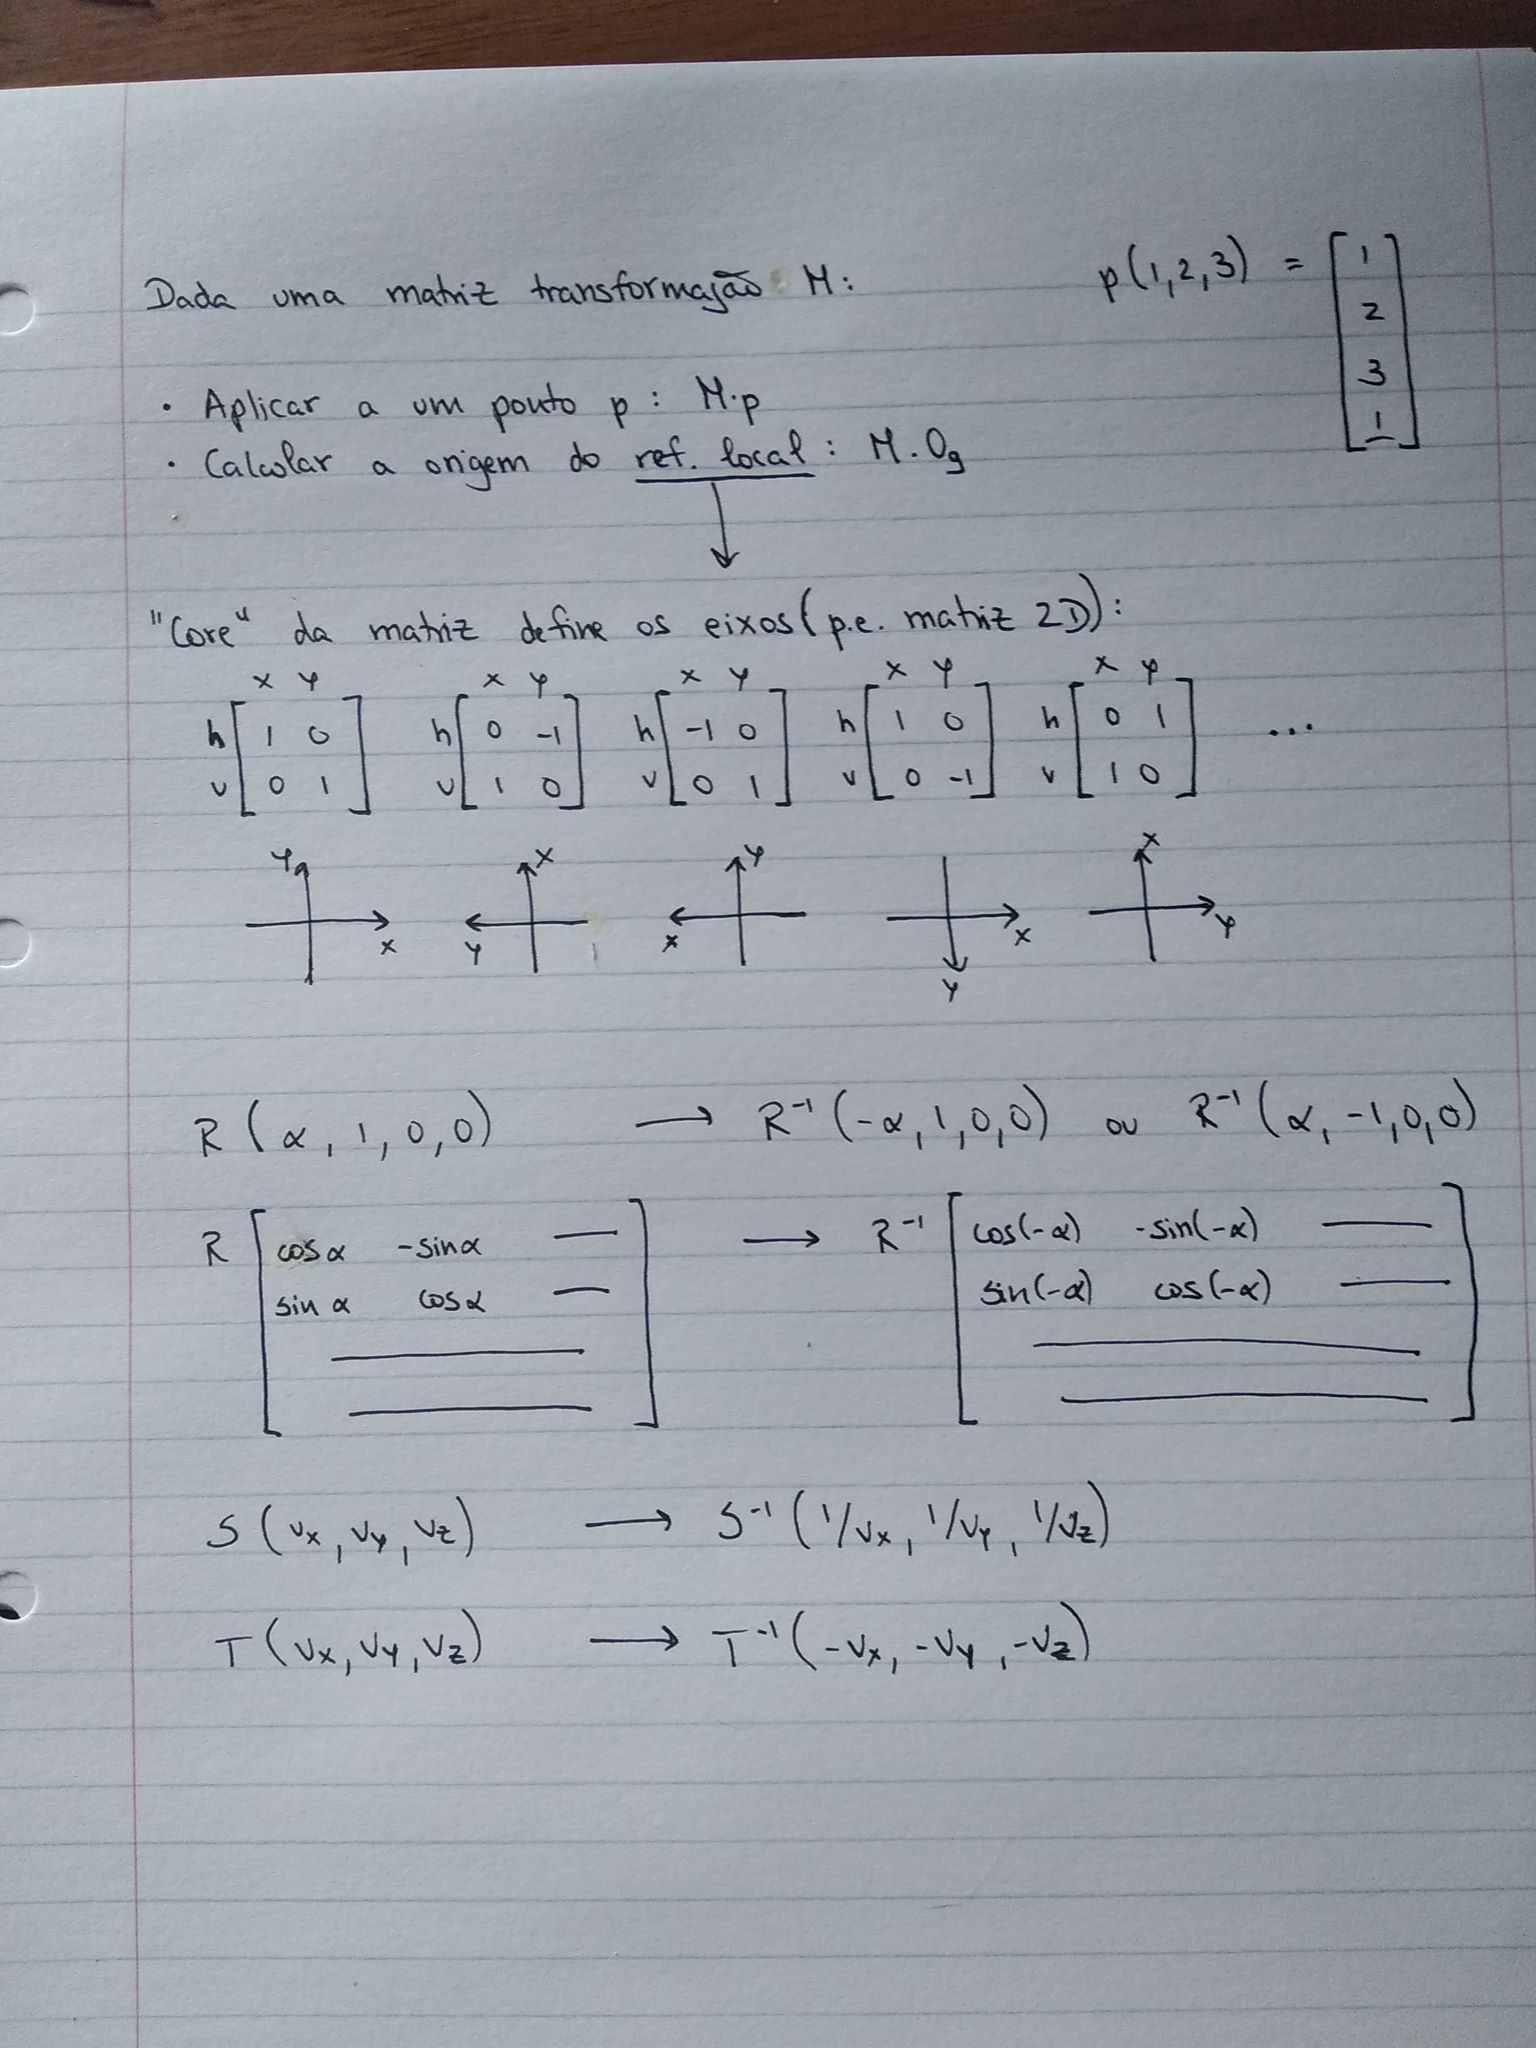 Dada uma matriz transformação M:
p(1,2,3) = [1
2
3
1]
• Aplicar a um ponto p : M.p
• Calcular a origem do ref. local : M.Og
"Core" da matriz define os eixos (p.e. matriz 2D):
x y x y x y x y x y
h [1 0 h [0 -1 h [-1 0 h [1 0 h [0 1 ...
v 0 1] v 1 0] v 0 1] v 0 -1] v 1 0]
y x y x
x y x x y
y
R (α, 1, 0, 0) → R⁻¹ (-α, 1, 0, 0) ou R⁻¹ (α, -1, 0, 0)
R [cos α -sin α — → R⁻¹ [cos(-α) -sin(-α) —
sin α cos α — sin(-α) cos(-α) —
— —
—] —]
S (vx, vy, vz) → S⁻¹ (1/vx, 1/vy, 1/vz)
T (vx, vy, vz) → T⁻¹ (-vx, -vy, -vz)